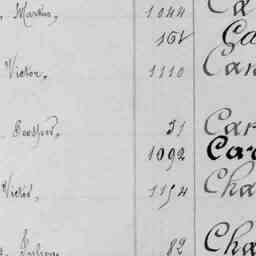 Martin, 1044 Ca
161 Ca
Victor, 1110 Car
Prosper, 51 Car
1092 Car
Victor, 1154 Cha
82 Cha